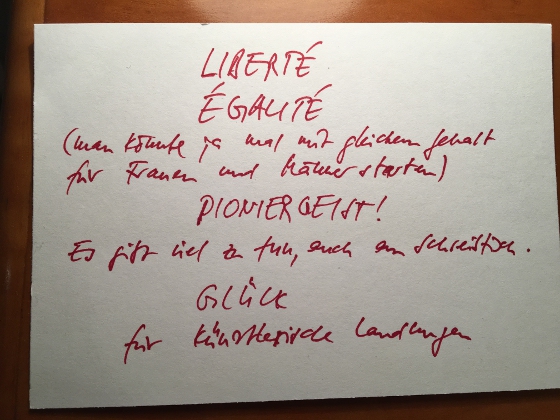 LIBERTÉ
ÉGALITÉ
(man könnte ja mal mit gleichem Gehalt
für Frauen und Männer starten)
PIONIERGEIST!
Es gibt viel zu tun, auch am Schreibtisch.
GLÜCK
für künstlerische Landungen